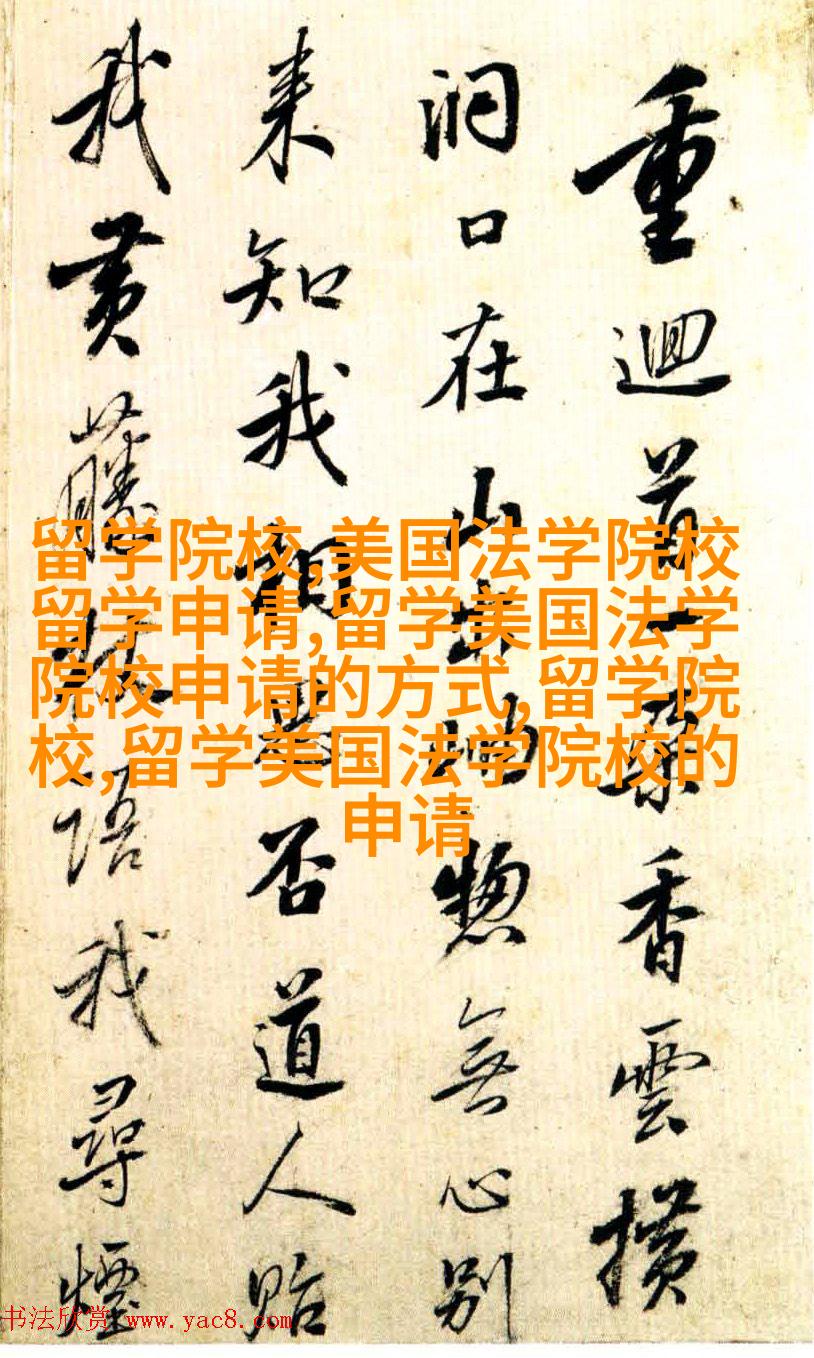 重迴首一香雲横
洞口在山岫惣無心别
来知我相否道人貽
我黄藤杖語我尋煙
留学院校,美国法学院校
留学申请,留学美国法学
院校申请的方式,留学院
校,留学美国法学院校的
申请
书法欣赏 www.yac8.com